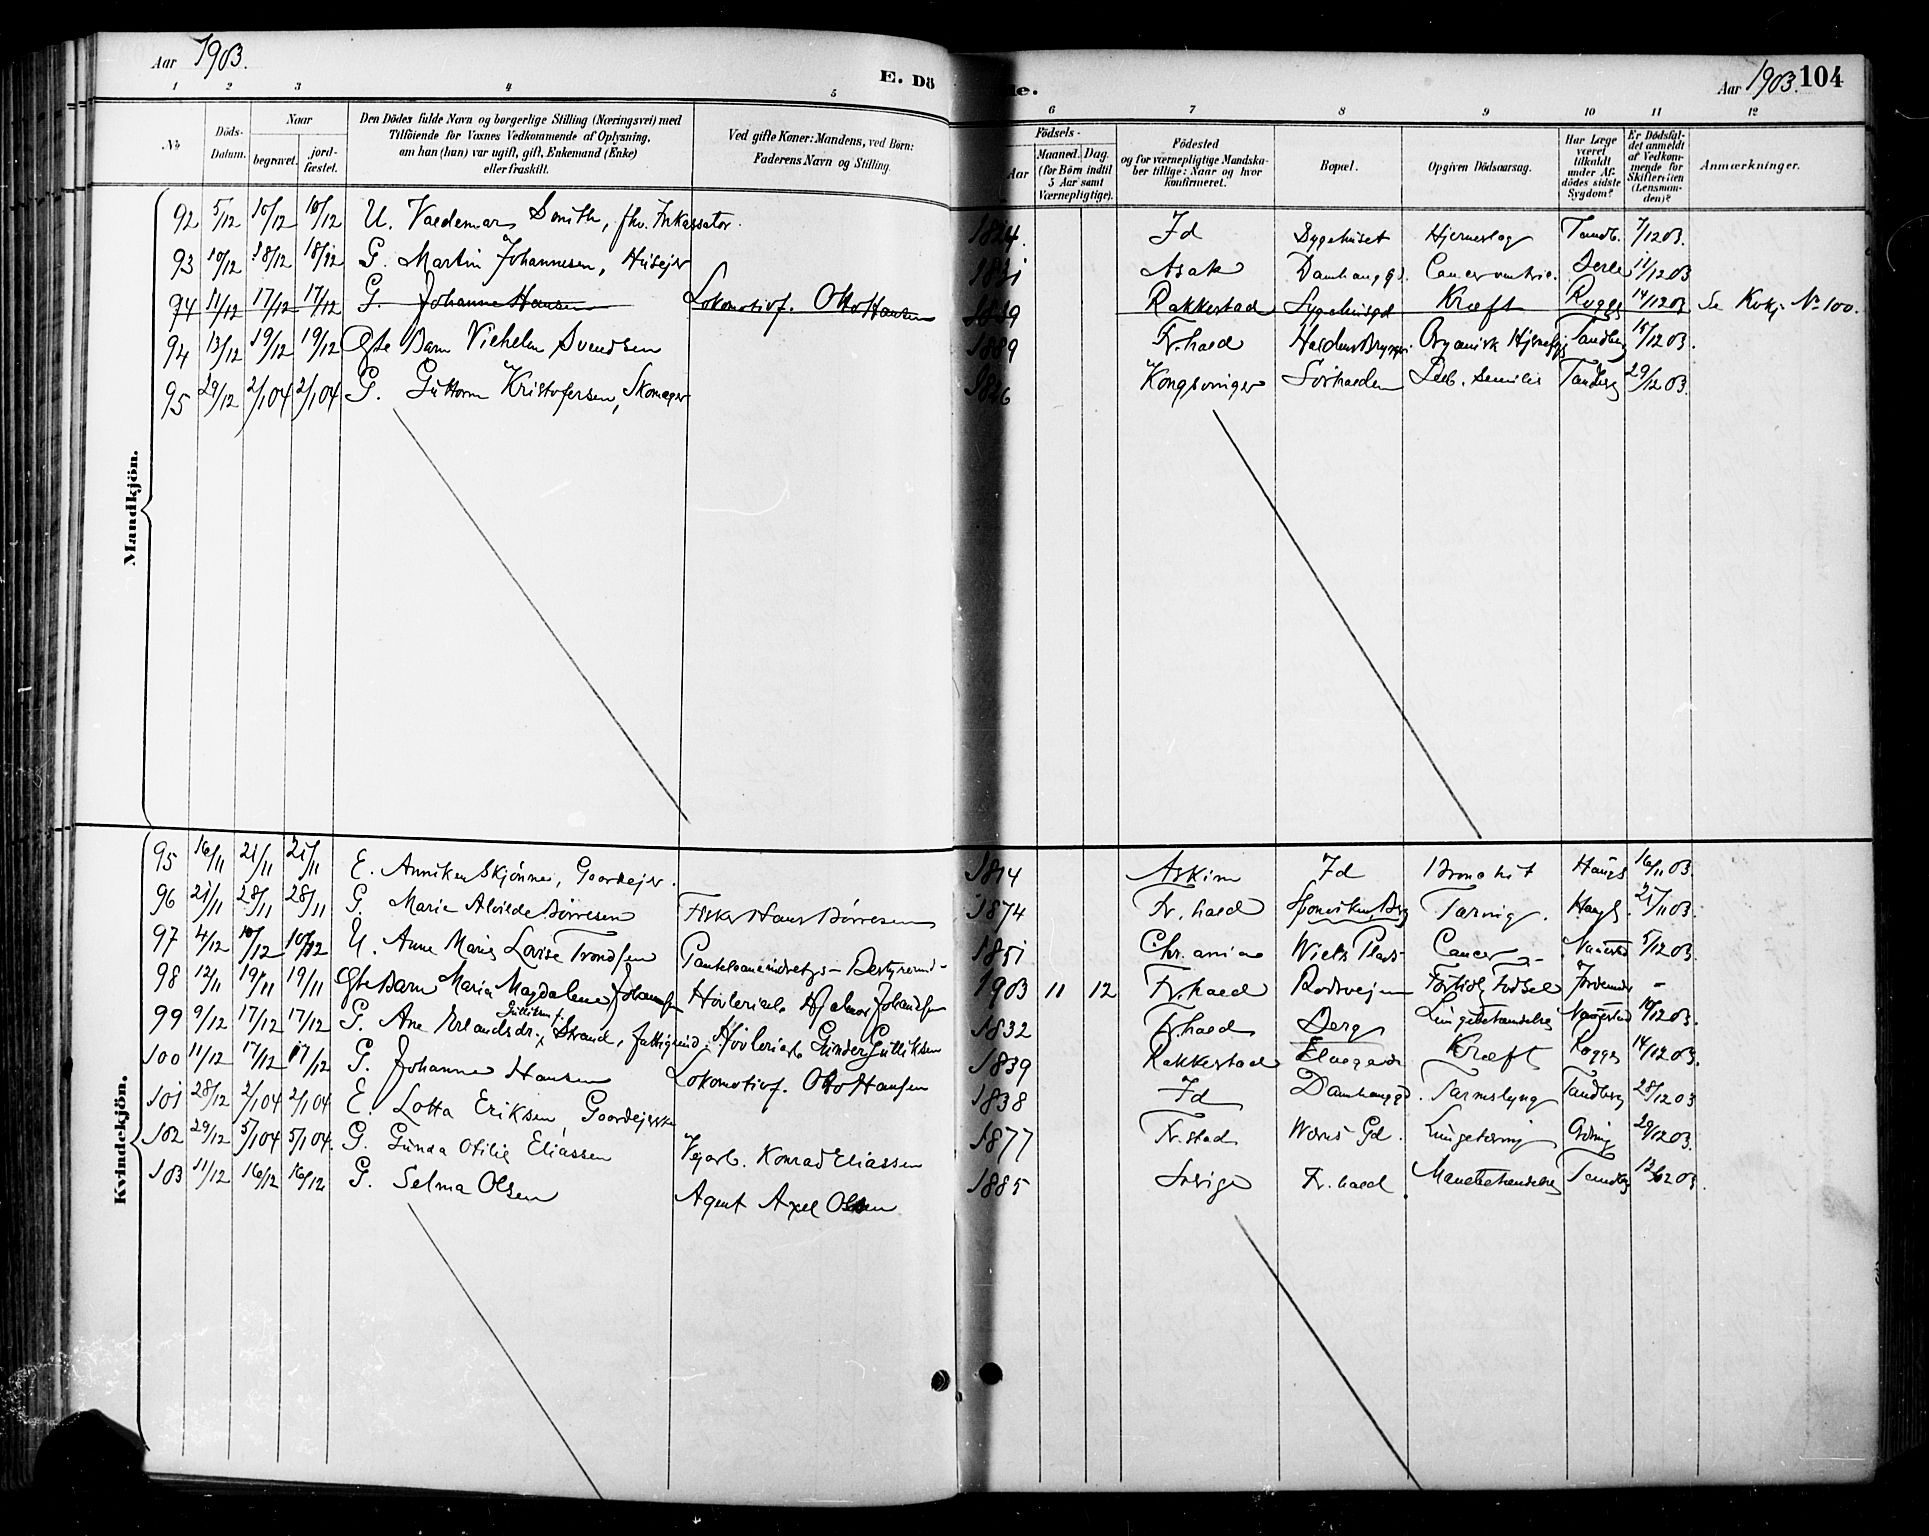 Aar 1903.
E. Dö
de.
Aar 1903. 104
1 2 3 4 5 6 7 8 9 10 11 12
No
Döds-Datum.
Naar
begravet.
jord-fæstet.
Den Dödes fulde Navn og borgerlige Stilling (Næringsvei) med
Tilföiende for Voxnes Vedkommende af Oplysning,
om han (hun) var ugift, gift, Enkemand (Enke)
eller fraskilt.
Ved gifte Koner: Mandens, ved Börn:
Faderens Navn og Stilling.
Födsels-
Aar
Maaned. Dag.
(for Börn indtil
5 Aar samt
Værnepligtige).
Födested
og for værnepligtige Mandska-
ber tillige: Naar og hvor
konfirmeret.
Bopæl.
Opgiven Dödsaarsag.
Har Læge
været
tilkaldt
under Af-
dödes sidste
Sygdom?
Er Dödsfal-
det anmeldt
af Vedkom-
mende for
Skifteretten
(Lensman-
den)?
Anmærkninger.
Mandkjön.
92 5/12 10/12 10/12 U. Valdemar Smith, fhv. Inkassator. 1824. Id Sygehuset Hjerneslag Tandb. 7/12 03.
93 10/12 18/12 18/12 G. Martin Johannesen, Husejer 1831 Asak Damhaugg. Cancer ventric. 11/12 03
94 11/12 17/12 17/12 G. Johanne Hansen Lokomotivf. Otto Hansen 1839 Rakkestad Sygehusgd Kræft Rogge 14/12 03 Se Kvkj. No 100.
94 13/12 19/12 19/12 Gte Barn Vilhelm Svendsen 1889 Fr.hald Organisk Tandberg 15/12 03.
95 29/12 2/1 04 2/1 04 G. Guttorm Kristofersen, Skomager 1826 Kongsvinger Sørhalden Tandberg 29/12 03.
Kvindekjön.
95 16/11 21/11 21/11 E. Anniken Skjønne, Gaardejer. 1814 Askim Id Bronchit 16/11 03.
96 21/11 28/11 28/11 G. Marie Alvilde Børresen Fisker Hans Børresen 1874 Fr.hald Sponviken, Berg Tæring. 21/11 03.
97 4/12 10/12 10/12 U. Anne Marie Lovise Trondsen 1851 Chr.ania Wiels Plads Cancer Nannestad 5/12 03.
98 12/11 19/11 19/11 Gte Barn Maria Magdalene Johansen Høvleriarb. Hjalmar Johansen 1903 11 12 Fr.hald Rødsvejen Fortidlig Fødsel Jordemor -
99 9/12 17/12 17/12 G. Ane Erlandsdr. Gulliksen f. Strand, fattigund. Høvleriarb. Gunder Gulliksen 1832 Fr.hald Berg Lungebetændelse Nannestad 10/12 03.
100 11/12 17/12 17/12 G. Johanne Hansen Lokomotivf. Otto Hansen 1839 Rakkestad Kræft Rogge 14/12 03.
101 28/12 2/1 04 2/1 04 E. Lotta Eriksen, Gaardejerske 1838 Id Damhauggd. Tarmslyng Tandberg 28/12 03
102 29/12 5/1 04 5/1 04. G. Gunda Otilie Eliassen Vejarb. Konrad Eliassen 1877 Fr.stad Gd. Lungetæring 29/12 03.
103 11/12 16/12 16/12 G. Selma Olsen Agent Axel Olsen 1885 Sverige Fr.hald Mavebetændelse Tandberg 12/12 03.